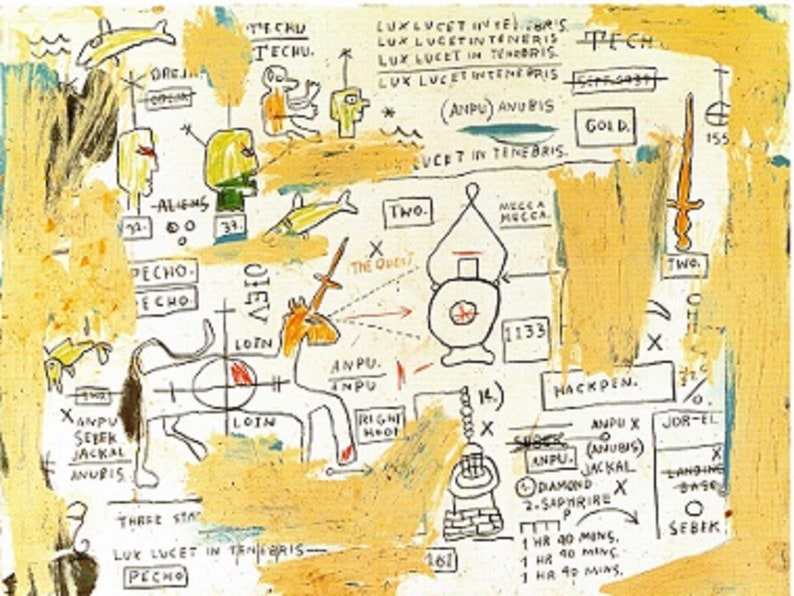 TECHU
TECHU.
LUX LUCET IN TENEBRIS.
LUX LUCET IN TENEBRIS
LUX LUCET IN TENEBRIS.
LUX LUCET IN TENEBRIS
TECH
(ANPU) ANUBIS
GOLD.
LUCET IN TENEBRIS.
155
ALIENS
32.
33.
TWO.
MECCA
MECCA.
TWO.
THE QUEST
PECHO.
PECHO.
LOIN
1133
ANPU.
ANPU
HACKPEN.
X ANPU
SEBEK
JACKAL
ANUBIS
LOIN
RIGHT
HOOF
X
SEBEK
ANPU X
(ANUBIS)
ANPU.
JACKAL
1. DIAMOND
2. SAPHRIRE X
JOR-EL
X
LANDING
BASE
SEBEK
THREE STA
LUX LUCET IN TENEBRIS
PECHO
161
1 HR 40 MINS.
1 HR 40 MINS.
1 HR 40 MINS.